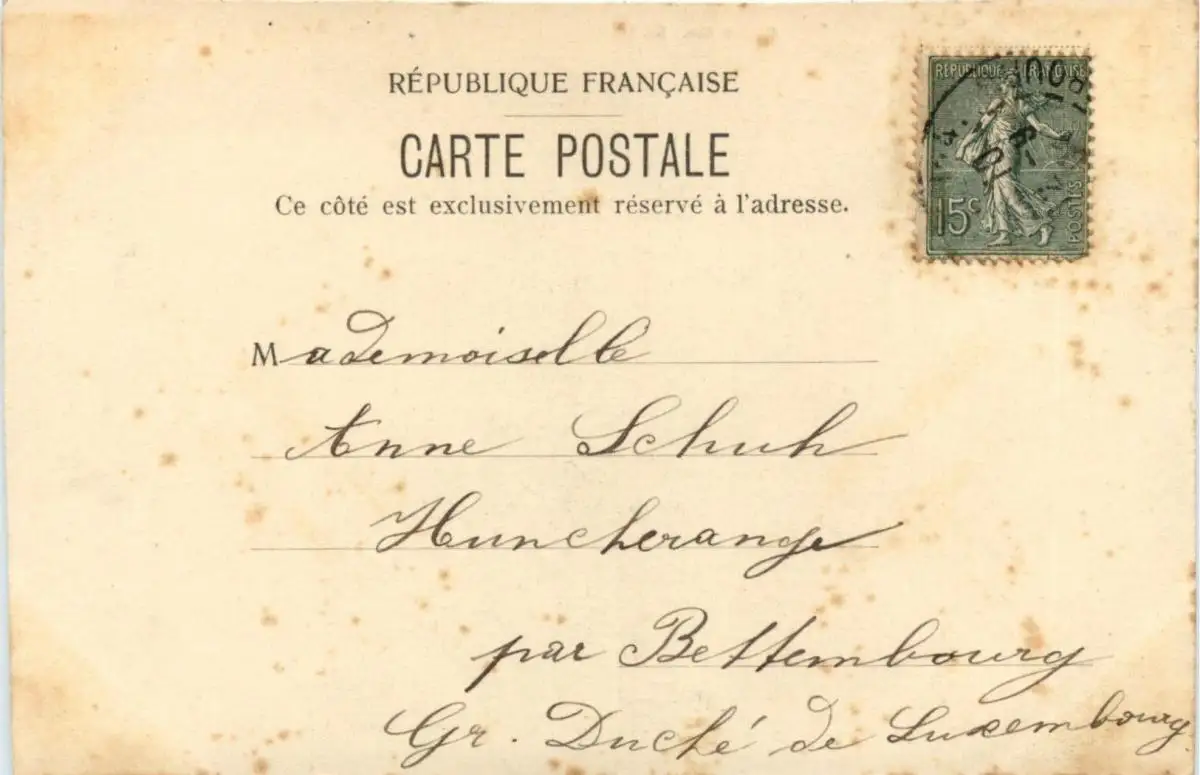 RÉPUBLIQUE FRANÇAISE
CARTE POSTALE
Ce côté est exclusivement réservé à l'adresse.
RÉPUBLIQUE FRANÇAISE
15c
POSTES
Mademoiselle
Anne Schuh
Huncherange
par Bettembourg
Gr. Duché de Luxembourg